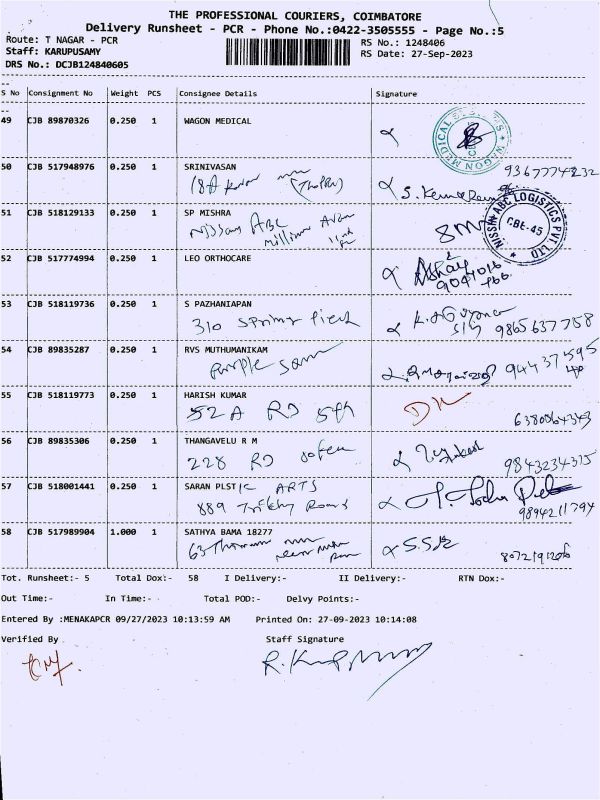 THE PROFESSIONAL COURIERS, COIMBATORE
Delivery Runsheet - PCR - Phone No.:0422-3505555 - Page No.:5
Route: T NAGAR - PCR
RS No.: 1248406
Staff: KARUPUSAMY
RS Date: 27-Sep-2023
DRS No.: DCJB124840605
S No Consignment No Weight PCS Consignee Details Signature
49 CJB 89870326 0.250 1 WAGON MEDICAL
WAGON MEDICAL
50 CJB 517948976 0.250 1 SRINIVASAN
9367774232
51 CJB 518129133 0.250 1 SP MISHRA
Nissan ABC
Millium
NISSIN ABC LOGISTICS PVT. LTD
CBE-45
52 CJB 517774994 0.250 1 LEO ORTHOCARE
Ashay
53 CJB 518119736 0.250 1 S PAZHANIAPAN
310 Spring Field
9865637758
54 CJB 89835287 0.250 1 RVS MUTHUMANIKAM
Purple
55 CJB 518119773 0.250 1 HARISH KUMAR
52 A RD 5th
56 CJB 89835306 0.250 1 THANGAVELU R M
228 RD
9843234315
57 CJB 518001441 0.250 1 SARAN PLSTIC ARTS
889 Trichy Road
9894211794
58 CJB 517989904 1.000 1 SATHYA BAMA 18277
63
Tot. Runsheet:- 5 Total Dox:- 58 I Delivery:- II Delivery:- RTN Dox:-
Out Time:- In Time:- Total POD:- Delvy Points:-
Entered By :MENAKAPCR 09/27/2023 10:13:59 AM Printed On: 27-09-2023 10:14:08
Verified By Staff Signature